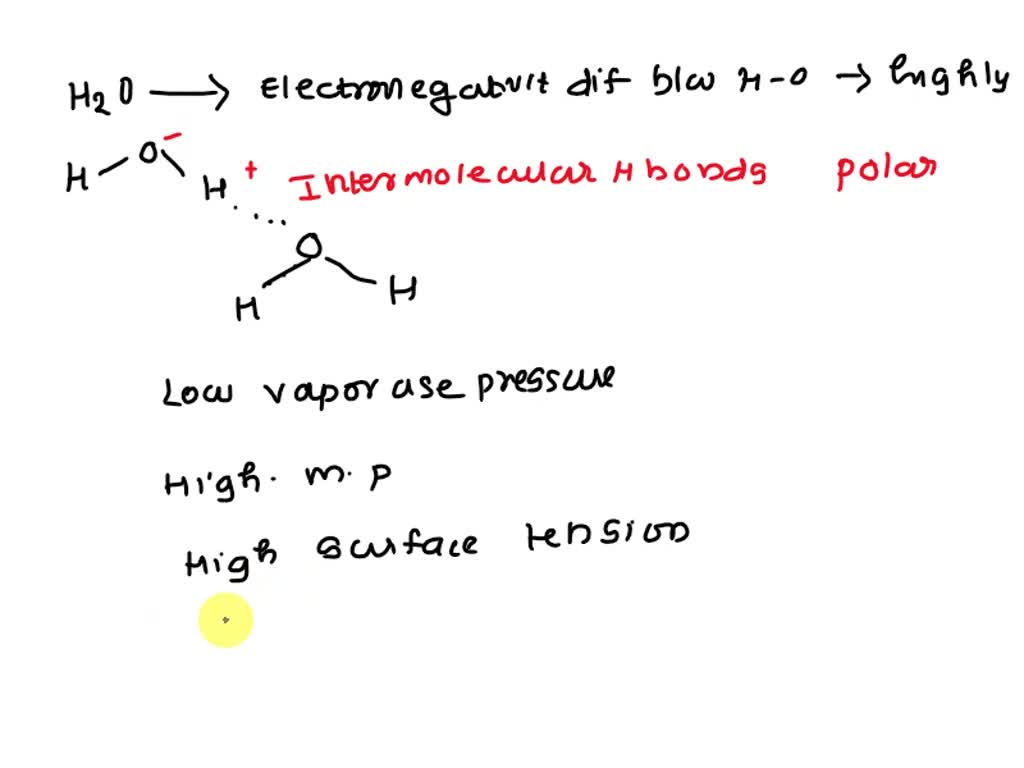 H2O → Electronegatuvit dif blw H-O → highly
H O - H + Intermolecular H bonds polar
O
H H
Low vapor ase pressure
High. m.p
High surface tension